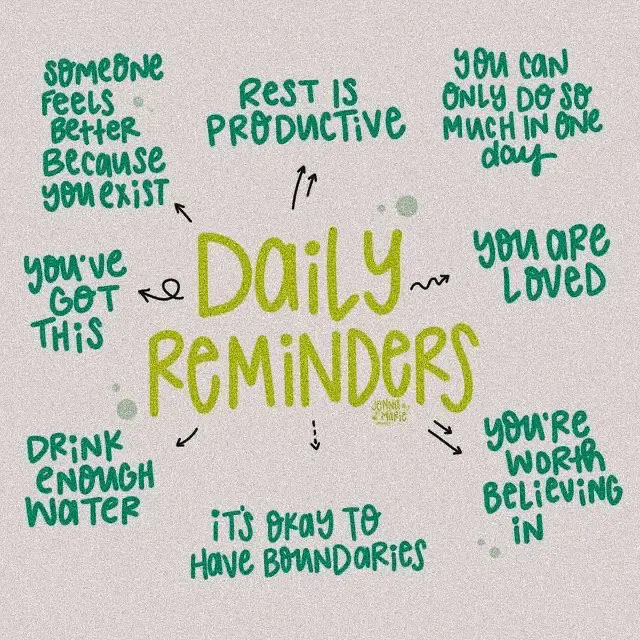 SOMEONE
FEELS
BETTER
BECAUSE
YOU EXIST
REST IS
PRODUCTIVE
YOU CAN
ONLY DO SO
MUCH IN ONE
day
YOU'VE
GOT
THIS
DAILY
REMINDERS
JENNA
MARIE
YOU ARE
LOVED
DRINK
ENOUGH
WATER
IT'S OKAY TO
HAVE BOUNDARIES
YOU'RE
WORTH
BELIEVING
IN